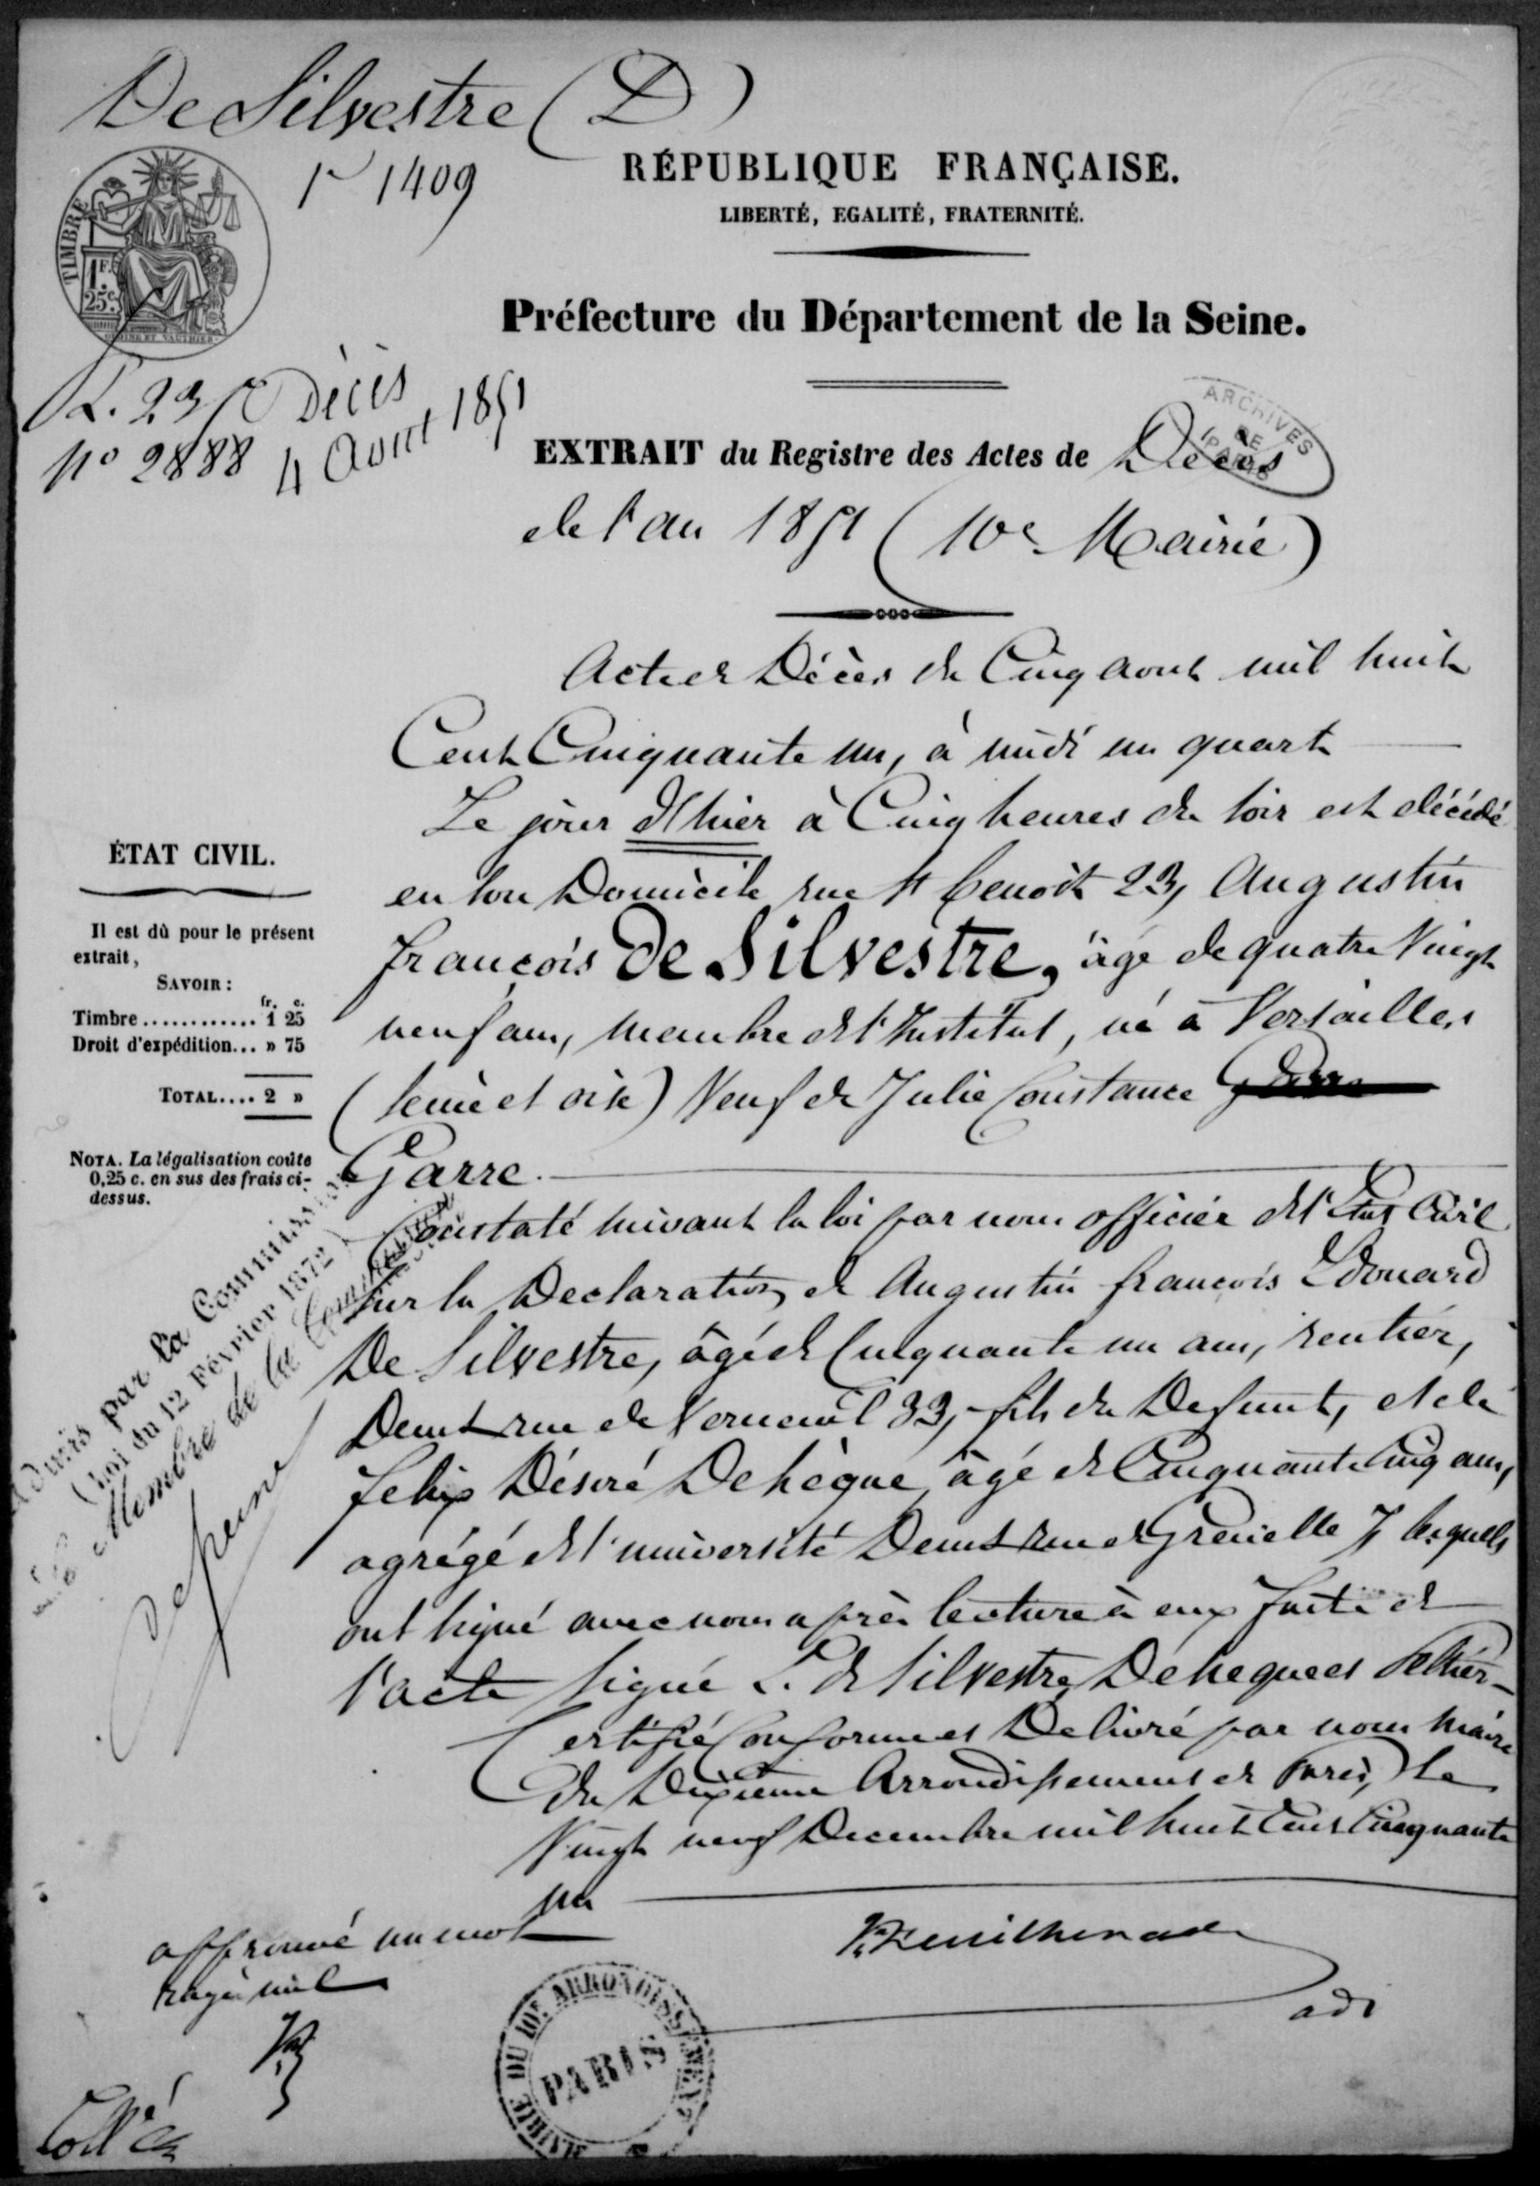 De Silvestre (D)
1409
TIMBRE
1F.
25c.
RÉPUBLIQUE FRANÇAISE.
LIBERTÉ, EGALITÉ, FRATERNITÉ.
Préfecture du Département de la Seine.
Décès
No 2888 4 Aout 1851
ARCHIVES
DE
PARIS
EXTRAIT du Registre des Actes de Décès
de l'an 1851 (10e Mairie)
Acte de Décès du Cinq aout mil huit
Cent Cinquante un, à midi un quart
Le jour d'hier à Cinq heures du soir est décédé
en son Domicile rue St Benoit 23, Augustin
françois De Silvestre, âgé de quatre Vingt
neuf ans, membre de l'Institut, né à Versailles
(seine et oise) Veuf de Julie Constance
Garre.
Constaté suivant la loi par nous officier de l'Etat Civil
sur la Declaration de Augustin françois Edouard
De Silvestre, âgé de Cinquante un ans, rentier,
Demt rue de Verneuil 33, fils du Defunt, et de
felix Désiré Dehèque, âgé de Cinquante Cinq ans,
agrégé de l'université Demt rue de Grenelle 7 lesquels
ont signé avec nous après lecture à eux faite de
l'acte signé de Silvestre, Dehequе et
Certifié Conforme et Délivré par nous Maire
du Dixieme Arrondissement de Paris, le
Vingt neuf Decembre mil huit Cent Cinquante
un
ÉTAT CIVIL.
Il est dû pour le présent
extrait,
SAVOIR :
fr. c.
Timbre............ 1 25
Droit d'expédition... » 75
TOTAL.... 2 »
NOTA. La légalisation coûte
0,25 c. en sus des frais ci-
dessus.
Admis par la Commission
(Loi du 12 Février 1872)
Le Membre de la Commission
approuvé un mot
rayé nul
MAIRIE DU 10E ARRONDISSEMENT
PARIS
adj
Coll'é